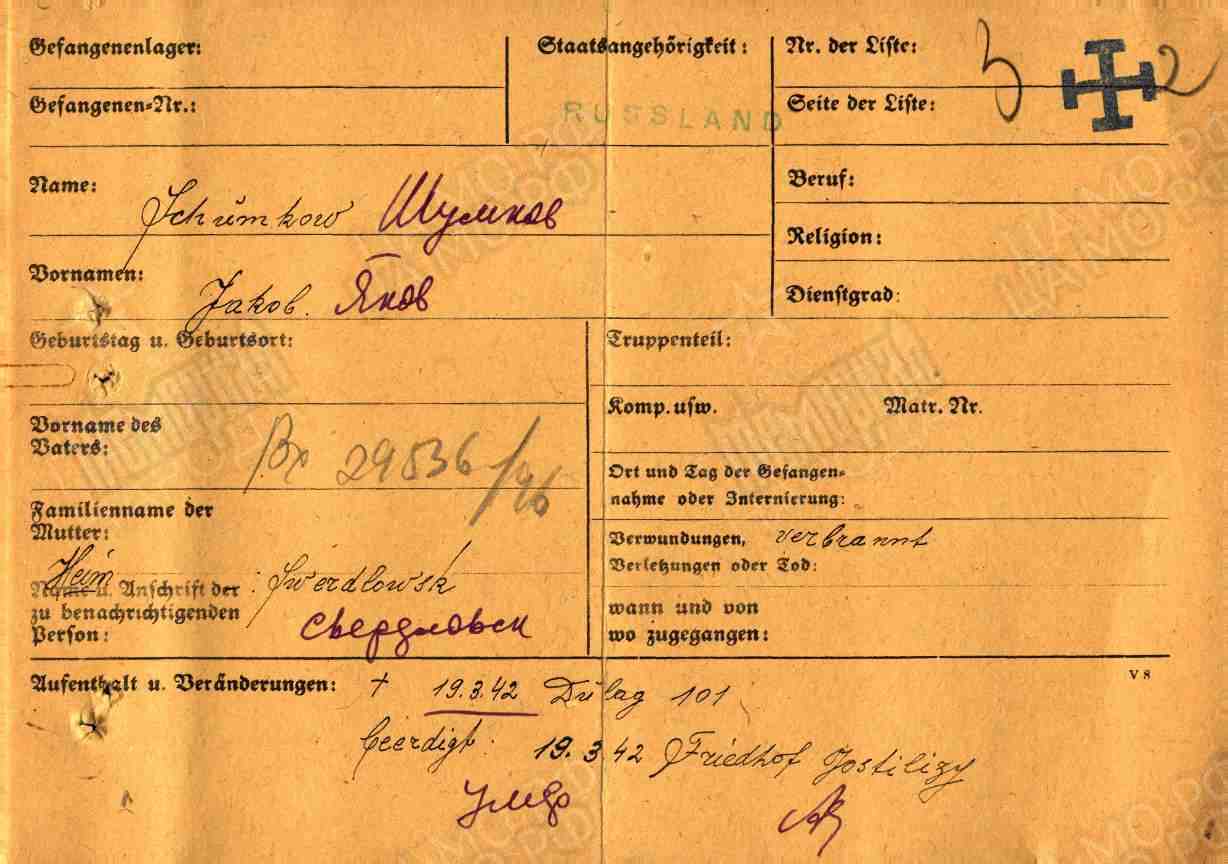 Gefangenenlager:
Staatsangehörigkeit:
Nr. der Liste:
Gefangenen-Nr.:
RUSSLAND
Seite der Liste:
2
Name: Schumkow Шумков
Beruf:
Religion:
Vornamen: Jakob. Яков
Dienstgrad:
Geburtstag u. Geburtsort:
Truppenteil:
Komp. usw. Matr. Nr.
Vorname des
Vaters:
Вх 29536/96
Ort und Tag der Gefangen-
nahme oder Internierung:
Familienname der
Mutter:
Verwundungen, verbrannt
Verletzungen oder Tod:
Heim
Name u. Anschrift der
zu benachrichtigenden
Person:
Swerdlowsk
Свердловск
wann und von
wo zugegangen:
V 8
Aufenthalt u. Veränderungen: † 19.3.42 Dulag 101
Beerdigt: 19.3.42 Friedhof
умер
ЦАМО РФ